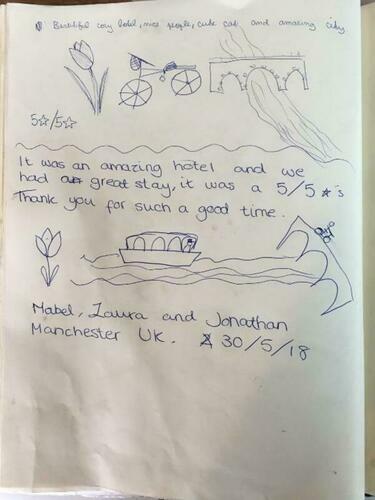 Beautiful cosy hotel, nice people, cute cat and amazing city
5☆/5☆
It was an amazing hotel and we
had a great stay, it was a 5/5 ★'s
Thank you for such a good time.
Mabel, Laura and Jonathan
Manchester UK. 30/5/18